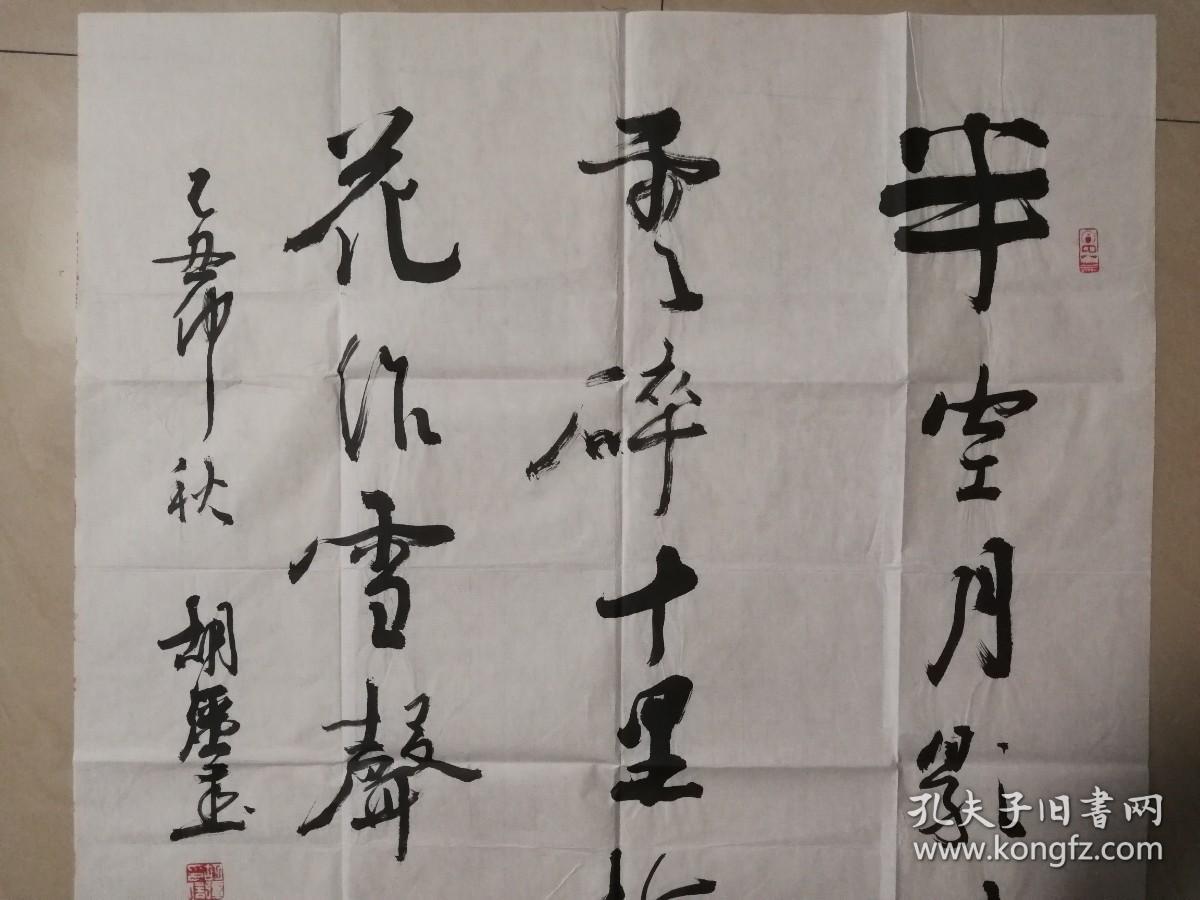 半空月影
雲碎十里
花作雪聲
乙丑仲秋 胡
孔夫子旧書网
www.kongfz.com